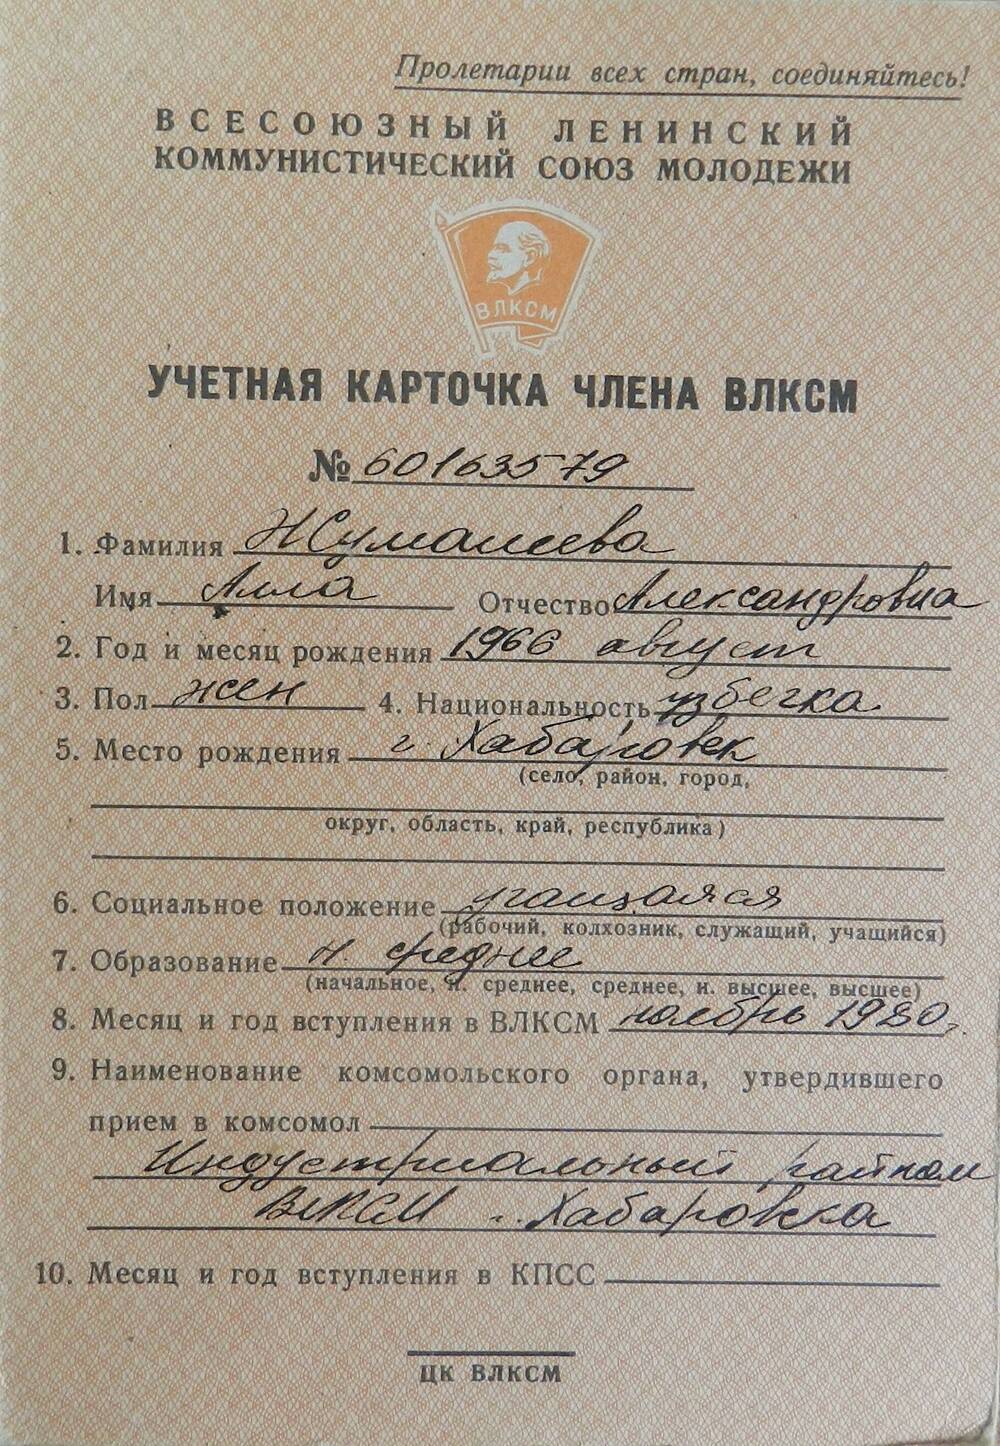 Пролетарии всех стран, соединяйтесь!
ВСЕСОЮЗНЫЙ ЛЕНИНСКИЙ
КОММУНИСТИЧЕСКИЙ СОЮЗ МОЛОДЕЖИ
ВЛКСМ
УЧЕТНАЯ КАРТОЧКА ЧЛЕНА ВЛКСМ
№ 60163579
1. Фамилия Жумалеева
Имя Алла Отчество Александровна
2. Год и месяц рождения 1966 август
3. Пол жен 4. Национальность узбечка
5. Место рождения г. Хабаровск
(село, район, город,
округ, область, край, республика)
6. Социальное положение учащаяся
(рабочий, колхозник, служащий, учащийся)
7. Образование н. среднее
(начальное, н. среднее, среднее, н. высшее, высшее)
8. Месяц и год вступления в ВЛКСМ ноябрь 1980 г.
9. Наименование комсомольского органа, утвердившего
прием в комсомол
Индустриальный райком
ВЛКСМ г. Хабаровска
10. Месяц и год вступления в КПСС
ЦК ВЛКСМ